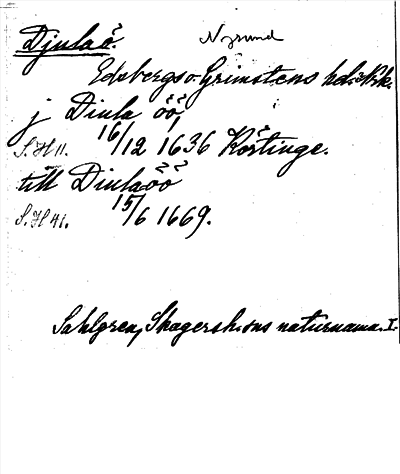 Djulaö. Nysund
Edsbergs o. Grimstens hd. Nrk.
j Diula öö,
S. H 11. 16/12 1636 Körtinge.
till Diulaöö
S. H 41. 15/6 1669.
Sahlgren, Skagersh:sns naturnamn. I.